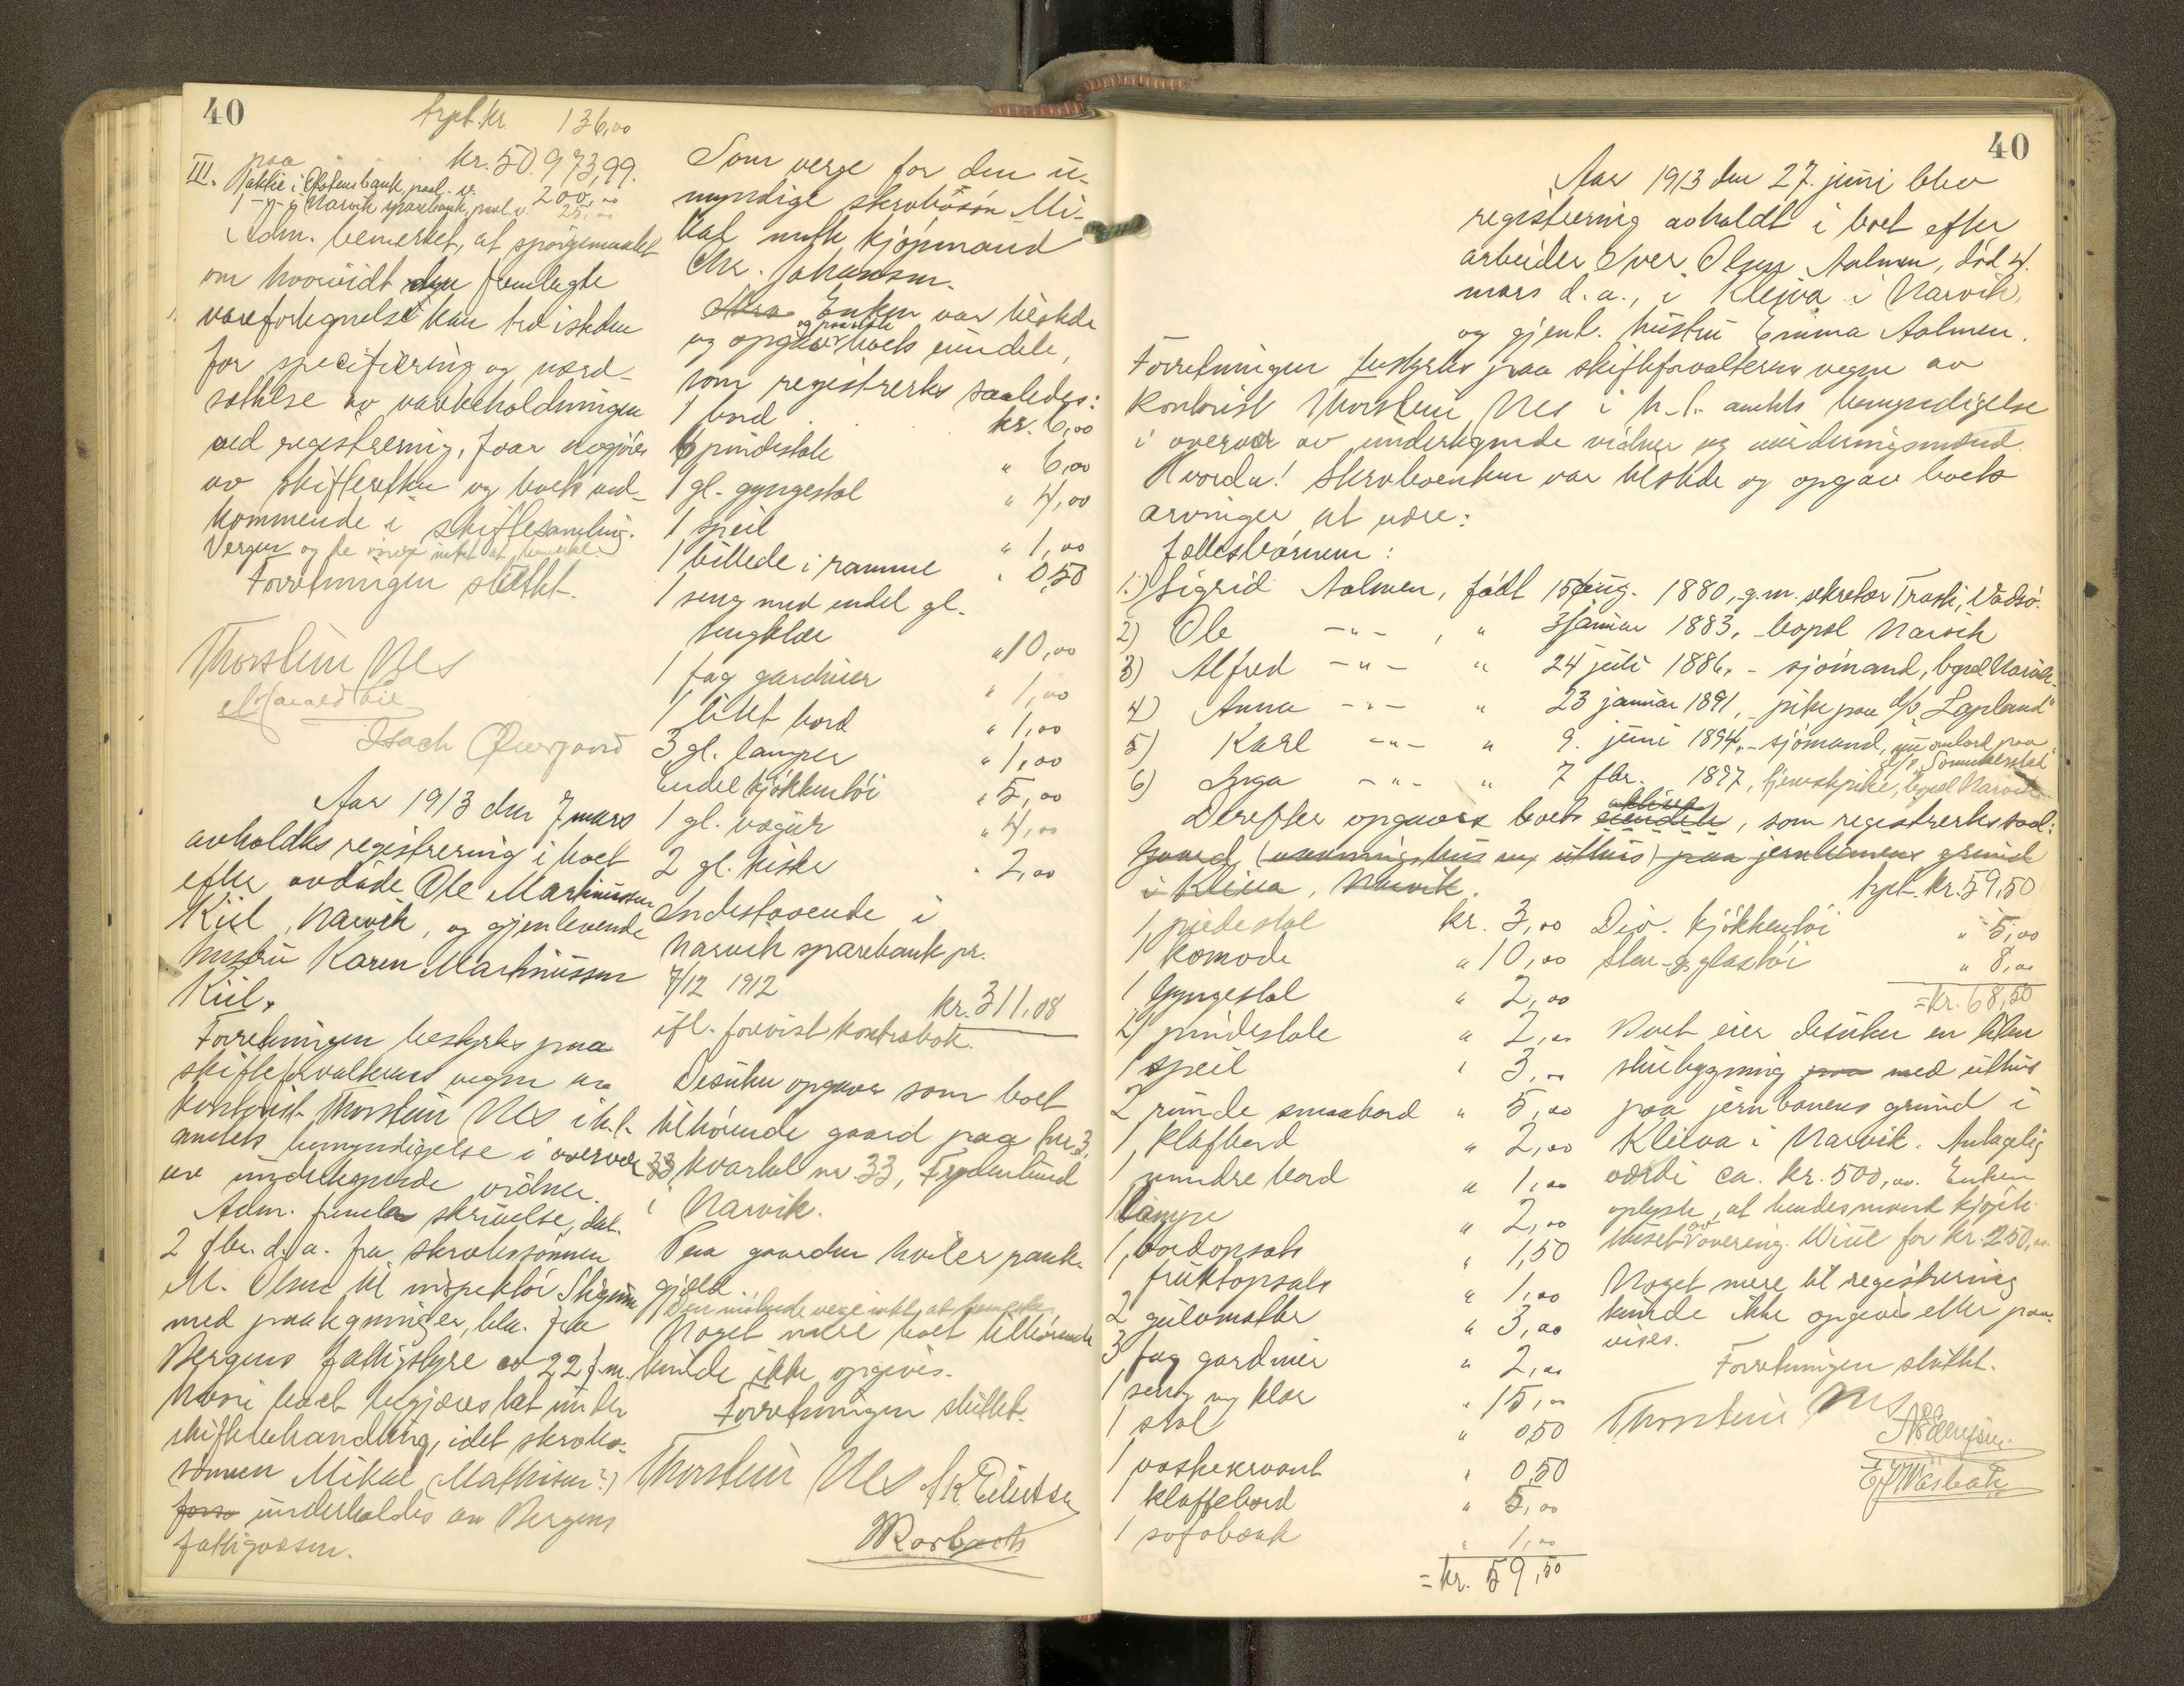 40
trpt. kr. 136,00
paa kr. 50.973,99.
III. 1 aktie i Ofotens bank, paal. kr. 200,00
1 -"- " Narvik sparebank, paal. v. 25,00
Adm. bemerket, at spörgsmaalet
om hvorvidt den fremlagte
varefortegnelse kan tre isteden
for specificering og værd-
sættelse av varebeholdningen
ved registrering, faar avgjöres
av skifteretten og boets ved-
kommende i skiftesamling.
Vergen og de övrige intet at bemerke.
Forretningen sluttet.
Thorstein Nes
Isach Overgaard
Aar 1913 den 7 mars
avholdtes registrering i boet
efter avdöde Ole Martinussen
Kiil, Narvik, og gjenlevende
hustru Karen Martinussen
Kiil.
Forretningen bestyrtes paa
skifteforvalterens vegne av
kontorist Thorstein Nes i h.t.
amtets bemyndigelse i overvær
av undertegnede vidner.
Adm. fremla skrivelse, dat.
2 fbr. d.a. fra skrobssönnen
M. Olsen til inspektör
med paategninger, bl.a. fra
Bergens fattigstyre av 22 f.m.
hvori boet begjæres tat under
skiftebehandling, idet skrobs-
sönnen Mikal (Mathisen?)
forso underholdes av Bergens
fattigvæsen.
Som verge for den u-
myndige skrobösön Mi-
kal mötte kjöpmand
Chr. Johansen.
Enken var tilstede
og paaviste
og opgav boets eiendele,
som registrertes saaledes:
1 bord kr. 6,00
6 pindestole " 6,00
1 gl. gyngestol " 4,00
1 speil " 1,00
1 billede i ramme " 0,50
1 seng med endel gl.
sengklær " 10,00
1 fag gardiner " 1,00
1 litet bord " 1,00
3 gl. lamper " 1,00
Endel kjökkentöi " 5,00
1 gl. vægur " 4,00
2 gl. kister " 2,00
Indestaaende i
Narvik sparebank pr.
7/12 1912 kr. 311,08
ifl. forevist kontrabok.
Desuten opgaves som boet
tilhörende gaard paa bnr. 3,
33 kvartal nr. 33, Frydenlund
i Narvik.
Paa gaarden hviler pante-
gjæld.
Den mötende verge intet at bemerke.
Noget mere boet tilhörende
kunde ikke opgives.
Forretningen sluttet.
Thorstein Nes
40
Aar 1913 den 27. juni blev
registrering avholdt i boet efter
arbeider Iver Olsen Aalmen, död 4.
mars d.a., i Kleiva i Narvik,
og gjenl. hustru Emma Aalmen.
Forretningen bestyrtes paa skifteforvalterens vegne av
kontorist Thorstein Nes i h.t. amtets bemyndigelse
i overvær av undertegnede vidner og vurderingsmænd.
Hvorda! Skroboenken var tilstede og opgav boets
arvinger at være:
fællesbörnene:
1.) Sigrid Aalmen, födt 15 aug. 1880, g.m. sekretær Trasti, Vadsö.
2) Ole -"- , " 3 januar 1883, bopæl Narvik
3) Alfred -"- " 24 juli 1886, - sjömand, bopæl Narvik.
4) Anna -"- " 23 januar 1891, - pike paa d/s "Lapland"
5) Karl -"- " 9. juni 1894, - sjömand, nu ombord paa
6) Inga -"- " 7 fbr. 1897, tjenestepike, bopæl Narvik
aktiva
Derefter opgaves boets eiendele, som registrertes saal:
Gaard (vaaningshus og uthus) paa jernbanens grund
i Kleiva, Narvik.
1 piedestal kr. 3,00
1 komode " 10,00
1 Gyngestol " 2,00
2 pindestole " 2,00
1 speil " 3,00
2 runde smaabord " 5,00
1 klafbord " 2,00
1 mindre bord " 1,00
1 lampe " 2,00
1 bordopsats " 1,50
1 fruktopsats " 1,00
2 gulvmatter " 3,00
3 fag gardiner " 2,00
1 seng og klær " 15,00
1 stol " 0,50
1 vaskeservant " 0,50
1 klaffebord " 5,00
1 sofabænk " 1,00
= kr. 59,50
trpt. kr. 59,50
Div. kjökkentöi " 5,00
Sten- og glastöi " 8,00
= kr. 68,50
Boet eier desuten en liten
stuebygning paa med uthus
paa jernbanens grund i
Kleiva i Narvik. Antagelig
værdi ca. kr. 500,00. Enken
oplyste, at hendes mand kjöpte
huset av overing. Wiul for kr. 250,00.
Noget mere til registrering
kunde ikke opgives eller paa-
vises.
Forretningen sluttet.
Thorstein Nes